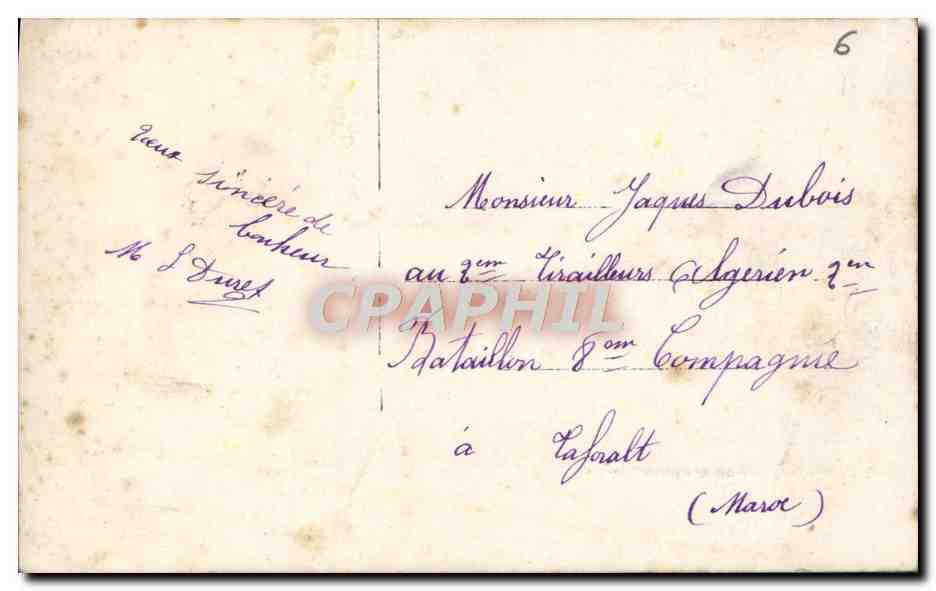 6
Vœux
sincère de
bonheur
M L Duret
Monsieur Jaques Dubois
au 2em Tirailleurs Algerien 2em
Bataillon 8em Compagnie
à Taforalt
(Maroc)
CPAPHIL